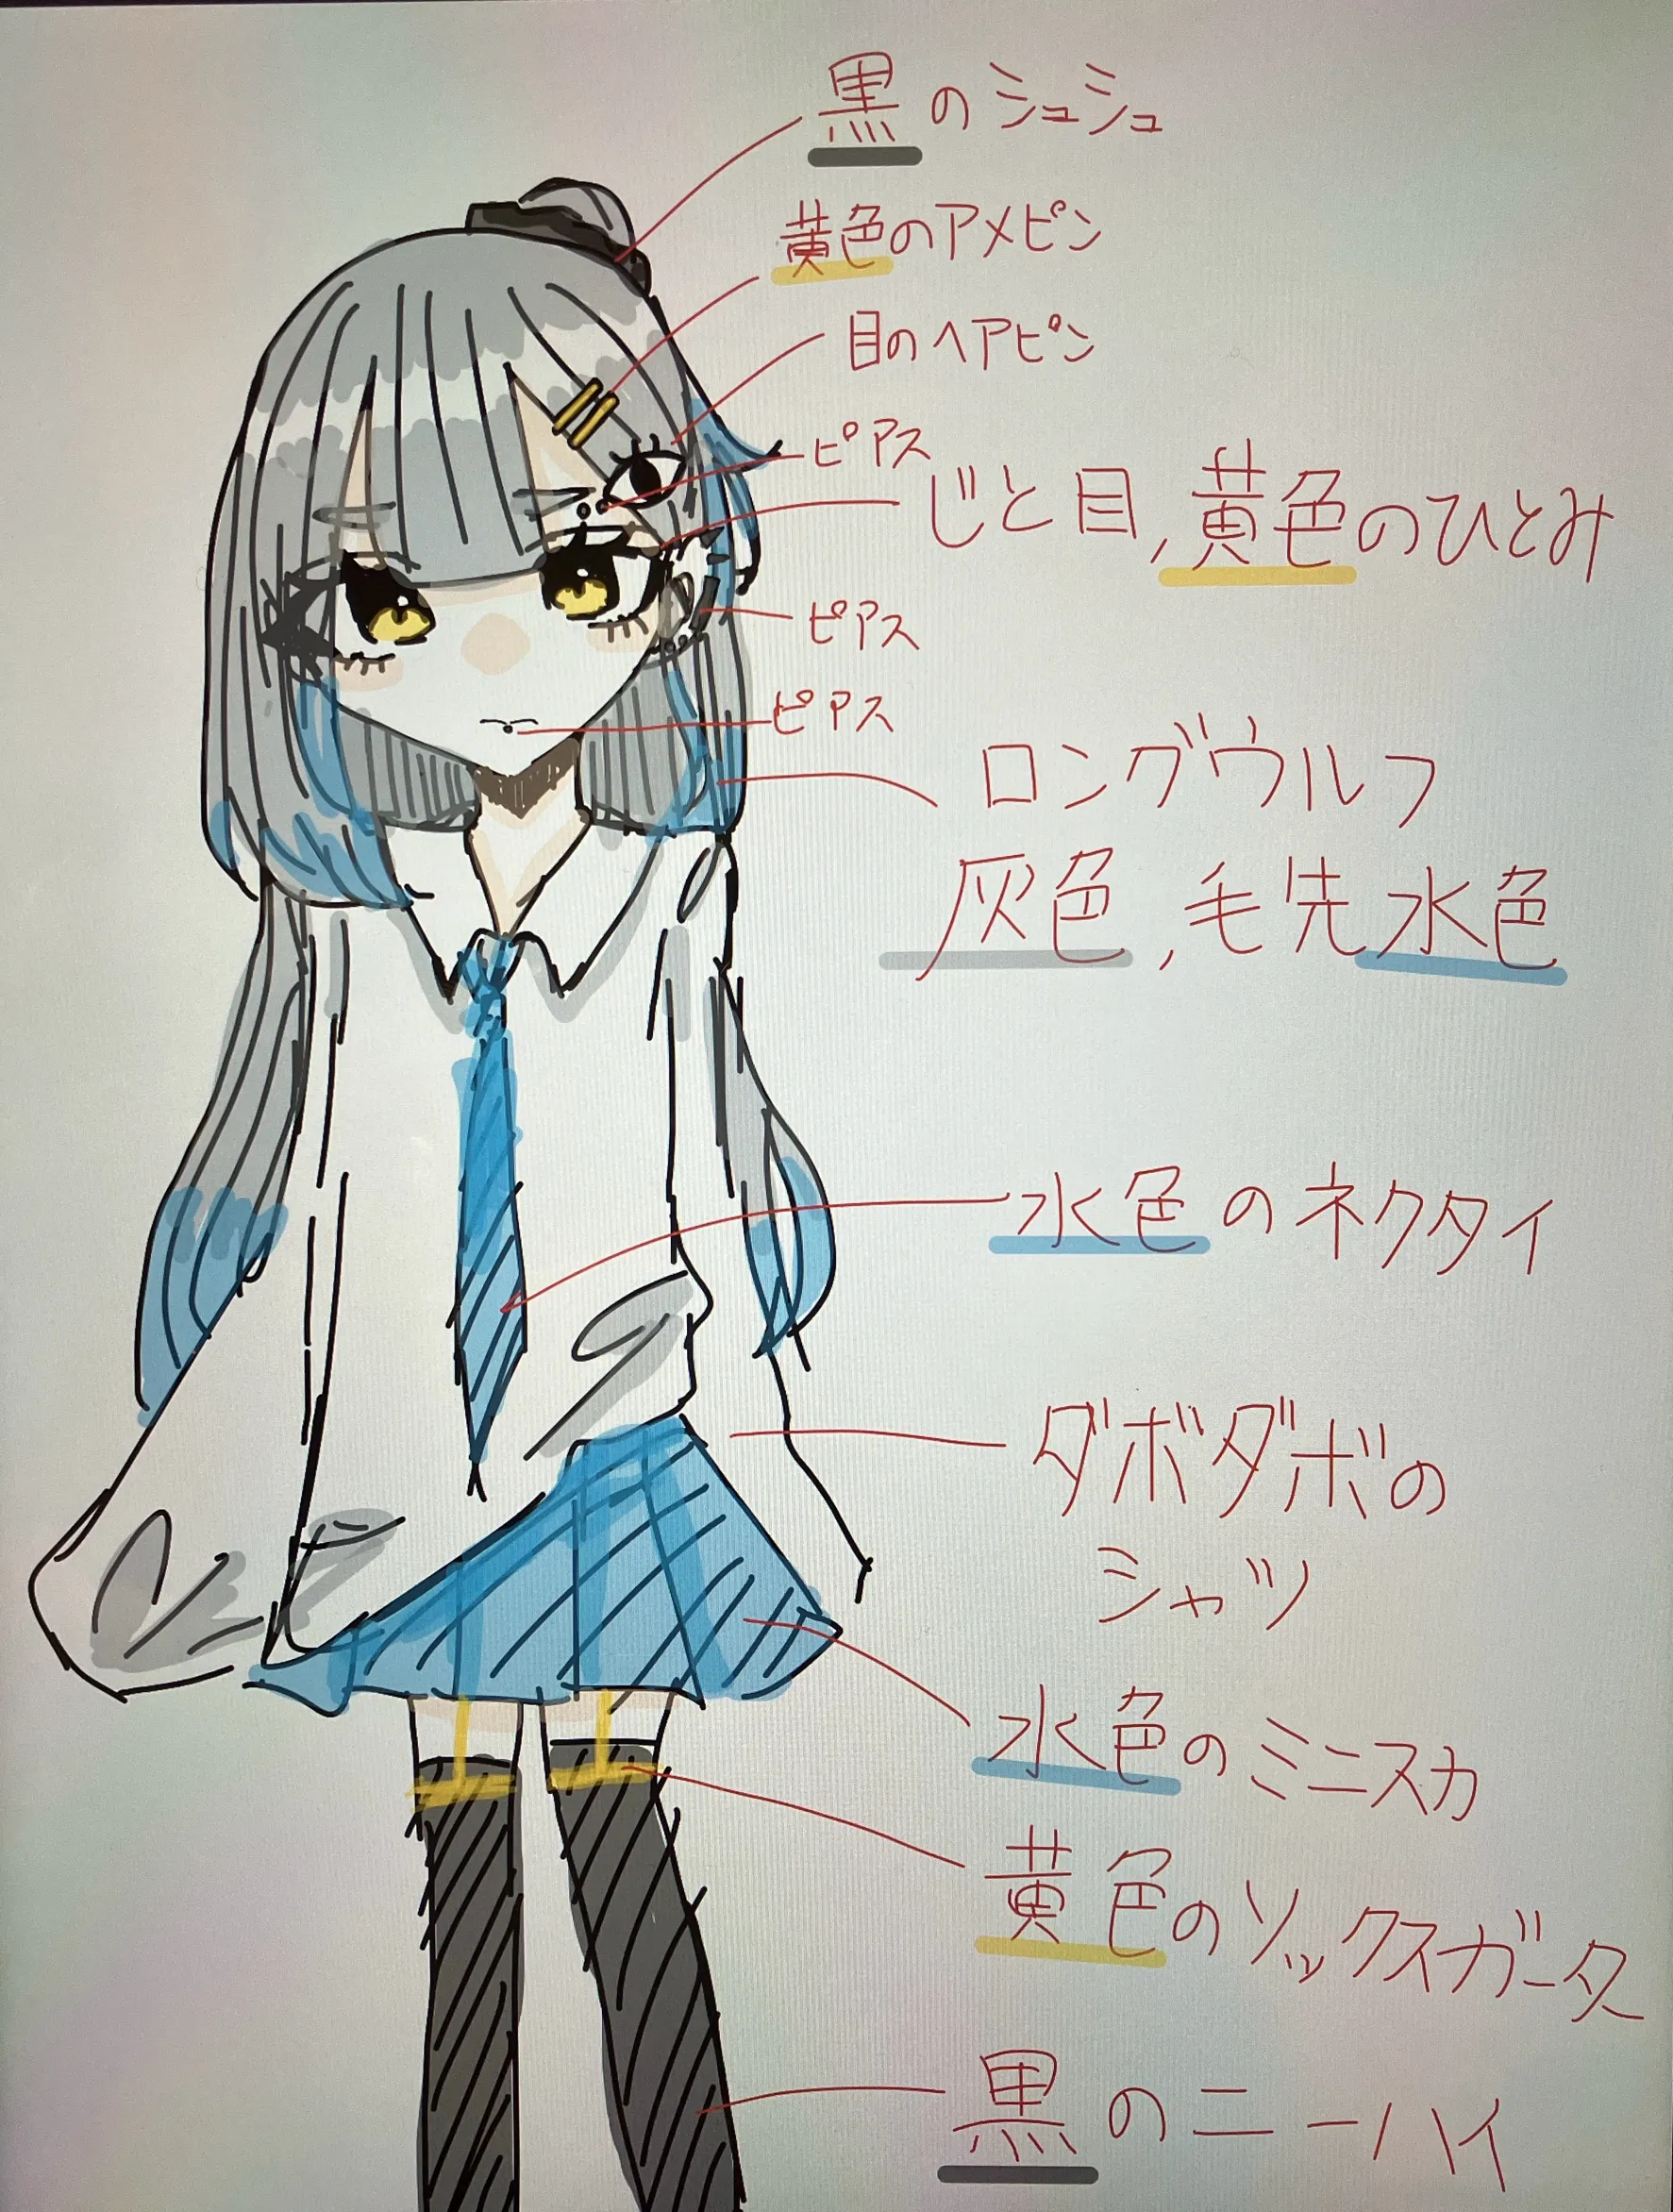 黒のシュシュ
黄色のアメピン
目のヘアピン
ピアス
じと目,黄色のひとみ
ピアス
ピアス
ロングウルフ
灰色,毛先水色
水色のネクタイ
ダボダボの
シャツ
水色のミニスカ
黄色のソックスガータ
黒のニーハイ